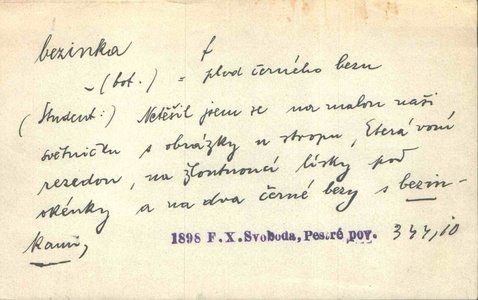 bezinka f
~ (bot.) = plod černého bezu
(Student:) Netěšil jsem se na malou naši
světničku s obrázky u stropu, která voní
rezedou, na žloutnoucí lísky pod
okénky a na dva černé bezy s bezin-
kami,
1898 F.X.Svoboda, Pestré pov. 344,10